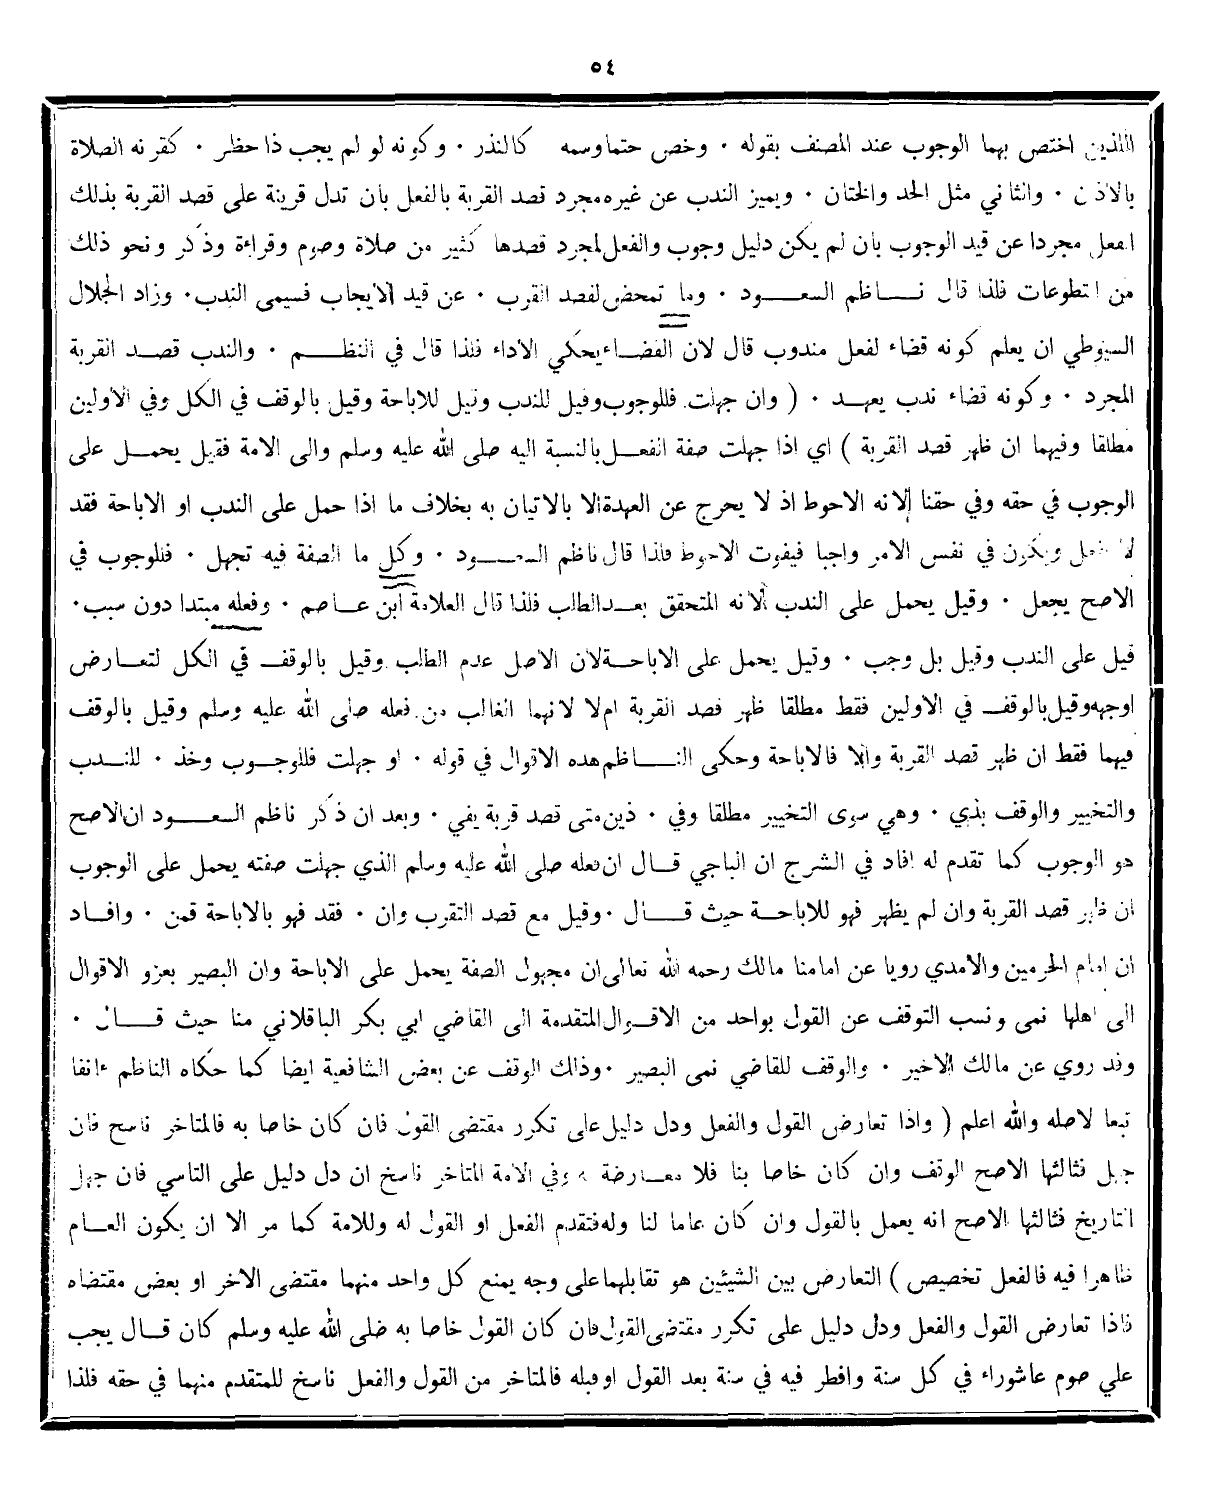 ٥٤
اللذين اختص بهما الوجوب عند المصنف بقوله ٠ وخص حتما وسمه كالنذر ٠ وكونه لو لم يجب ذا حظر ٠ كقرنه الصلاة
بالاذن ٠ والثاني مثل الحد والختان ٠ ويميز الندب عن غيره مجرد قصد القربة بالفعل بان تدل قرينة على قصد القربة بذلك
الفعل مجردا عن قيد الوجوب بان لم يكن دليل وجوب والفعل لمجرد قصدها كثير من صلاة وصوم وقراءة وذكر ونحو ذلك
من التطوعات فلذا قال نـاظم السعـود ٠ وما تمحض لقصد القرب ٠ عن قيد الايجاب فسيمى الندب ٠ وزاد الجلال
السيوطي ان يعلم كونه قضاء لفعل مندوب قال لان القضـاء يحكي الاداء فلذا قال في النظـم ٠ والندب قصـد القربة
المجرد ٠ وكونه قضاء ندب يعهـد ٠ ( وان جهلت فللوجوب وقيل للندب وقيل للاباحة وقيل بالوقف في الكل وفي الاولين
مطلقا وفيهما ان ظهر قصد القربة ) اي اذا جهلت صفة الفعـل بالنسبة اليه صلى الله عليه وسلم والى الامة فقيل يحمـل على
الوجوب في حقه وفي حقنا لانه الاحوط اذ لا يخرج عن العهدة الا بالاتيان به بخلاف ما اذا حمل على الندب او الاباحة فقد
لا يفعل ويكون في نفس الامر واجبا فيفوت الاحوط فلذا قال ناظم السعـود ٠ وكل ما الصفة فيه تجهل ٠ فللوجوب في
الاصح يجعل ٠ وقيل يحمل على الندب لانه المتحقق بعـد الطلب فلذا قال العلامة ابن عـاصم ٠ وفعله مبتدا دون سبب ٠
قيل على الندب وقيل بل وجب ٠ وقيل يحمل على الاباحـة لان الاصل عدم الطلب وقيل بالوقف في الكل لتعـارض
اوجهه وقيل بالوقف في الاولين فقط مطلقا ظهر قصد القربة ام لا لانهما الغالب من فعله صلى الله عليه وسلم وقيل بالوقف
فيهما فقط ان ظهر قصد القربة والا فالاباحة وحكى النـاظم هذه الاقوال في قوله ٠ او جهلت فللوجـوب وخذ ٠ للنـدب
والتخيير والوقف بذي ٠ وهي سوى التخيير مطلقا وفي ٠ ذين متى قصد قربة يفي ٠ وبعد ان ذكر ناظم السعـود ان الاصح
هو الوجوب كما تقدم له افاد في الشرح ان الباجي قـال ان فعله صلى الله عليه وسلم الذي جهلت صفته يحمل على الوجوب
ان ظهر قصد القربة وان لم يظهر فهو للاباحـة حيث قـال ٠ وقيل مع قصد التقرب وان ٠ فقد فهو بالاباحة قمن ٠ وافـاد
ان امام الحرمين والامدي رويا عن امامنا مالك رحمه الله تعالى ان مجهول الصفة يحمل على الاباحة وان البصير بعزو الاقوال
الى اهلها نمى ونسب التوقف عن القول بواحد من الاقـوال المتقدمة الى القاضي ابي بكر الباقلاني منا حيث قـال ٠
وقد روي عن مالك الاخير ٠ والوقف للقاضي نمى البصير ٠ وذلك الوقف عن بعض الشافعية ايضا كما حكاه الناظم ءانفا
تبعا لاصله والله اعلم ( واذا تعارض القول والفعل ودل دليل على تكرر مقتضى القول فان كان خاصا به فالمتاخر ناسخ فان
جهل فثالثها الاصح الوقف وان كان خاصا بنا فلا معـارضة وفي الامة المتاخر ناسخ ان دل دليل على التاسي فان جهل
التاريخ فثالثها الاصح انه يعمل بالقول وان كان عاما لنا وله فتقدم الفعل او القول له وللامة كما مر الا ان يكون العـام
ظاهرا فيه فالفعل تخصيص ) التعارض بين الشيئين هو تقابلهما على وجه يمنع كل واحد منهما مقتضى الاخر او بعض مقتضاه
فاذا تعارض القول والفعل ودل دليل على تكرر مقتضى القول فان كان القول خاصا به صلى الله عليه وسلم كان قـال يجب
علي صوم عاشوراء في كل سنة وافطر فيه في سنة بعد القول او قبله فالمتاخر من القول والفعل ناسخ للمتقدم منهما في حقه فلذا